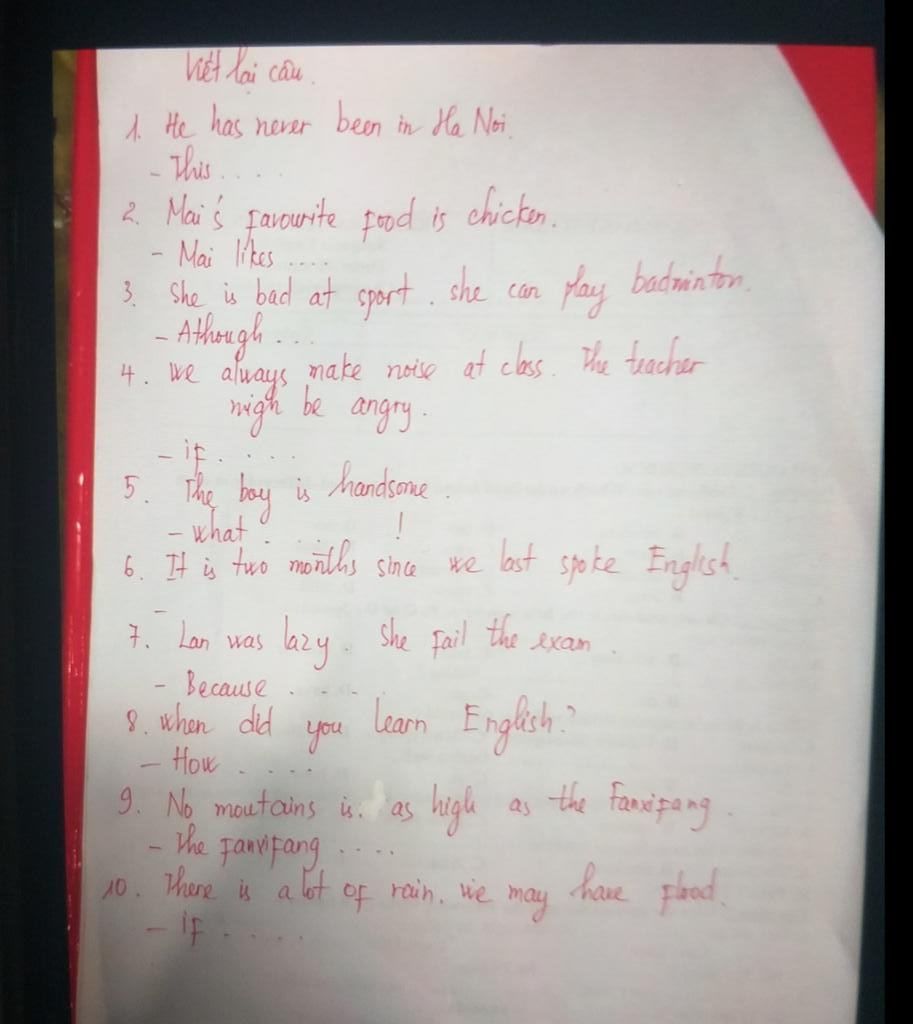 Viết lại câu.
1. He has never been in Ha Noi.
- This....
2. Mai's favourite food is chicken.
- Mai likes....
3. She is bad at sport. she can play badminton.
- Athough...
4. we always make noise at class. The teacher
nigh be angry.
- if.....
5. The boy is handsome.
- what....!
6. It is two months since we last spoke English.
-
7. Lan was lazy. She fail the exam.
- Because....
8. when did you learn English?
- How....
9. No moutains is. as high as the Fanxifang.
- The fanxifang....
10. There is a lot of rain. we may have flood.
- if.....